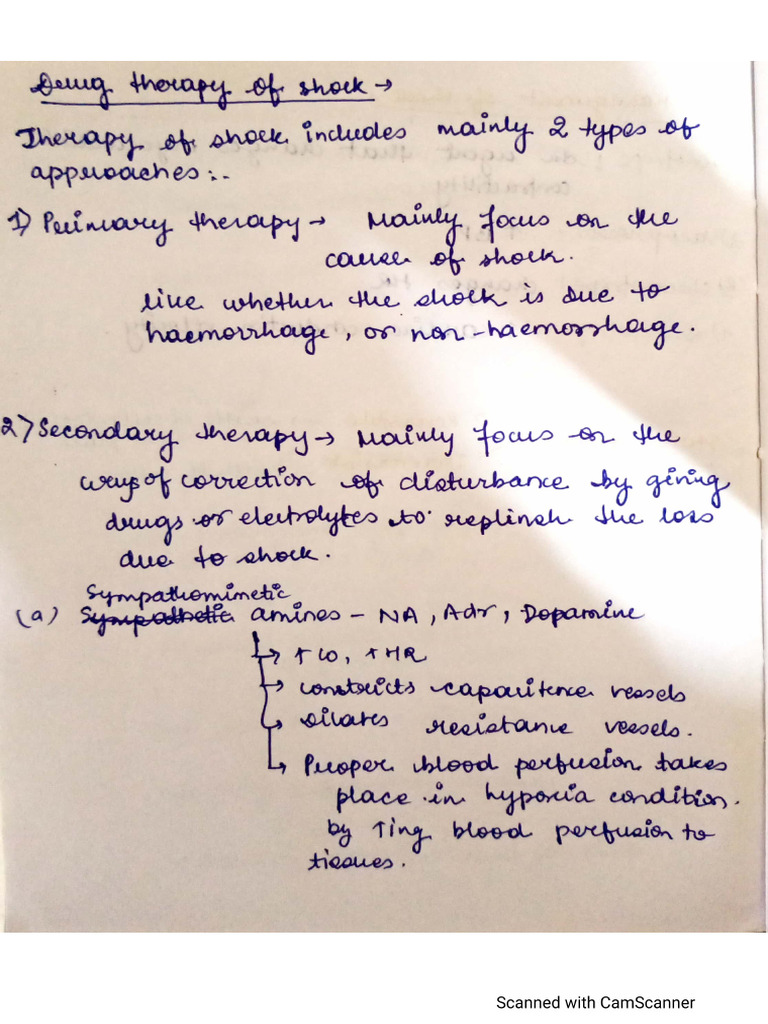 Drug therapy of shock →
Therapy of shock includes mainly 2 types of
approaches:-
1) Primary therapy → Mainly focus on the
cause of shock.
like whether the shock is due to
haemorrhage, or non-haemorrhage.
2) Secondary therapy → Mainly focus on the
ways of correction of disturbance by giving
drugs or electrolytes to replinsh the loss
due to shock.
Sympathomimetic
(a) Sympathetic amines - NA, Adr, Dopamine
↳ ↑ CO, ↑ HR
→ constricts capacitence vessels
→ dilates resistance vessels.
↳ Proper blood perfusion takes
place in hypoxia condition.
by ↑ing blood perfusion to
tissues.
Scanned with CamScanner